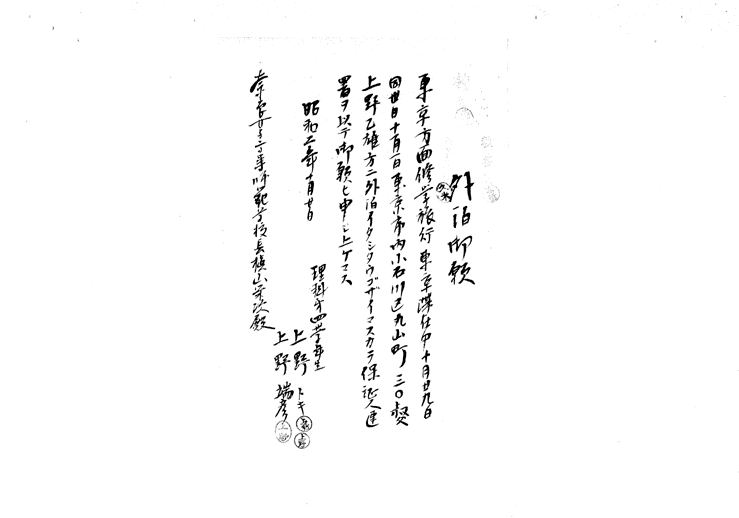 外泊御願
東京方面修学旅行東京滞在中十月廿九日
同卅日十月一日東京市内小石川区丸山町三〇
上野乙雄方ニ外泊イタシタウゴザイマスカラ保証人連
署ヲ以テ御願ヒ申シ上ゲマス
昭和二年十月廿日
理科第四学年生
上野トキ
上野瑞彦
奈良女子高等師範学校長槇山栄次殿